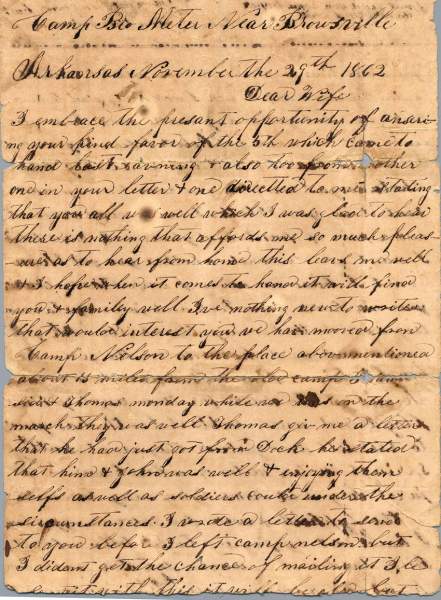 Camp Bio Meter Near Brownsville
Arkansas November the 29th 1862
Dear Wife
I embrace the presant opportunity of ansuri
ng your kind favor of the 5th which came to
hand last evening & also too from other
one in your letter & one directted to me stating
that you all was well which I was glad to hear
there is nothing that affords me so much pleas
ure as to hear from home this leavs me well
& I hope when it comes to hand it will find
you & family well I've nothing new to write
that would interest you we have moved from
Camp Nelson to the place above mentioned
about 15 miles from the old camp I
& Thomas monday while we was on the
march they was well Thomas give me a letter
that he had just got from Dock he stated
that him & John was well & enjoying them
selfs as well as soldiers could under the
sircumstances I wrote a letter to send
to you before I left camp nelson but
I didant get the chance of mailing it I le
with this it will but